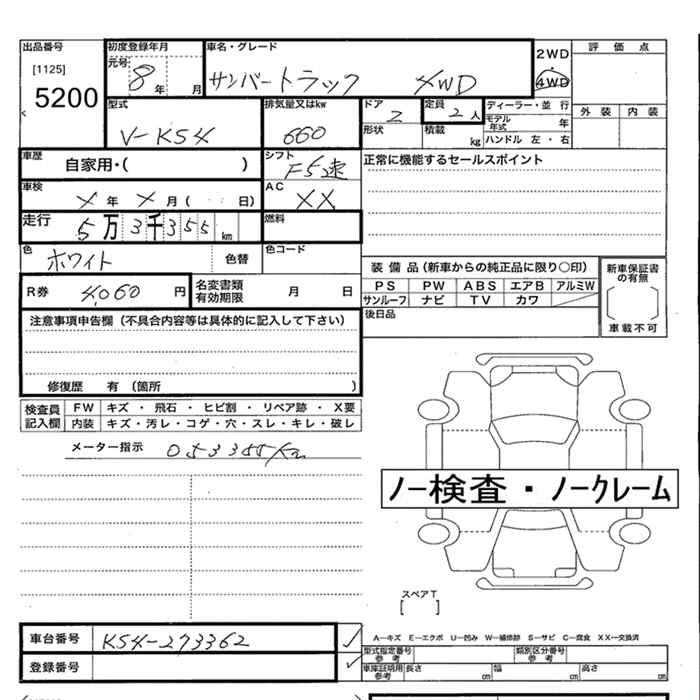 出品番号
[1125]
5200
初度登録年月
元号
8年 月
車名・グレード
サンバートラック 4WD
2WD
4WD
評価点
外装 内装
型式
V-KS4
排気量又はkw
660
ドア
2
定員
2人
形状
積載 kg
ディーラー・並行
モデル年式 年
ハンドル 左・右
車歴
自家用・( )
シフト
F5速
車検
X年 X月( 日)
AC
XX
走行
5万3千355km
燃料
正常に機能するセールスポイント
色
ホワイト
色替
色コード
R券 4,060 円
名変書類有効期限 月 日
装備品(新車からの純正品に限り〇印)
PS PW ABS エアB アルミW
サンルーフ ナビ TV カワ
後日品
新車保証書の有無
車載不可
注意事項申告欄(不具合内容等は具体的に記入して下さい)
修復歴 有(箇所 )
検査員記入欄
FW キズ・飛石・ヒビ割・リペア跡・X要
内装 キズ・汚レ・コゲ・穴・スレ・キレ・破レ
メーター指示 053355Km
ノー検査・ノークレーム
スペアT
[ ]
車台番号 KS4-273362
登録番号
A-キズ E-エクボ U-凹み W-補修跡 S-サビ C-腐食 XX-交換済
型式指定番号参考
類別区分番号参考
車庫証明用参考 長さ cm 幅 cm 高さ cm